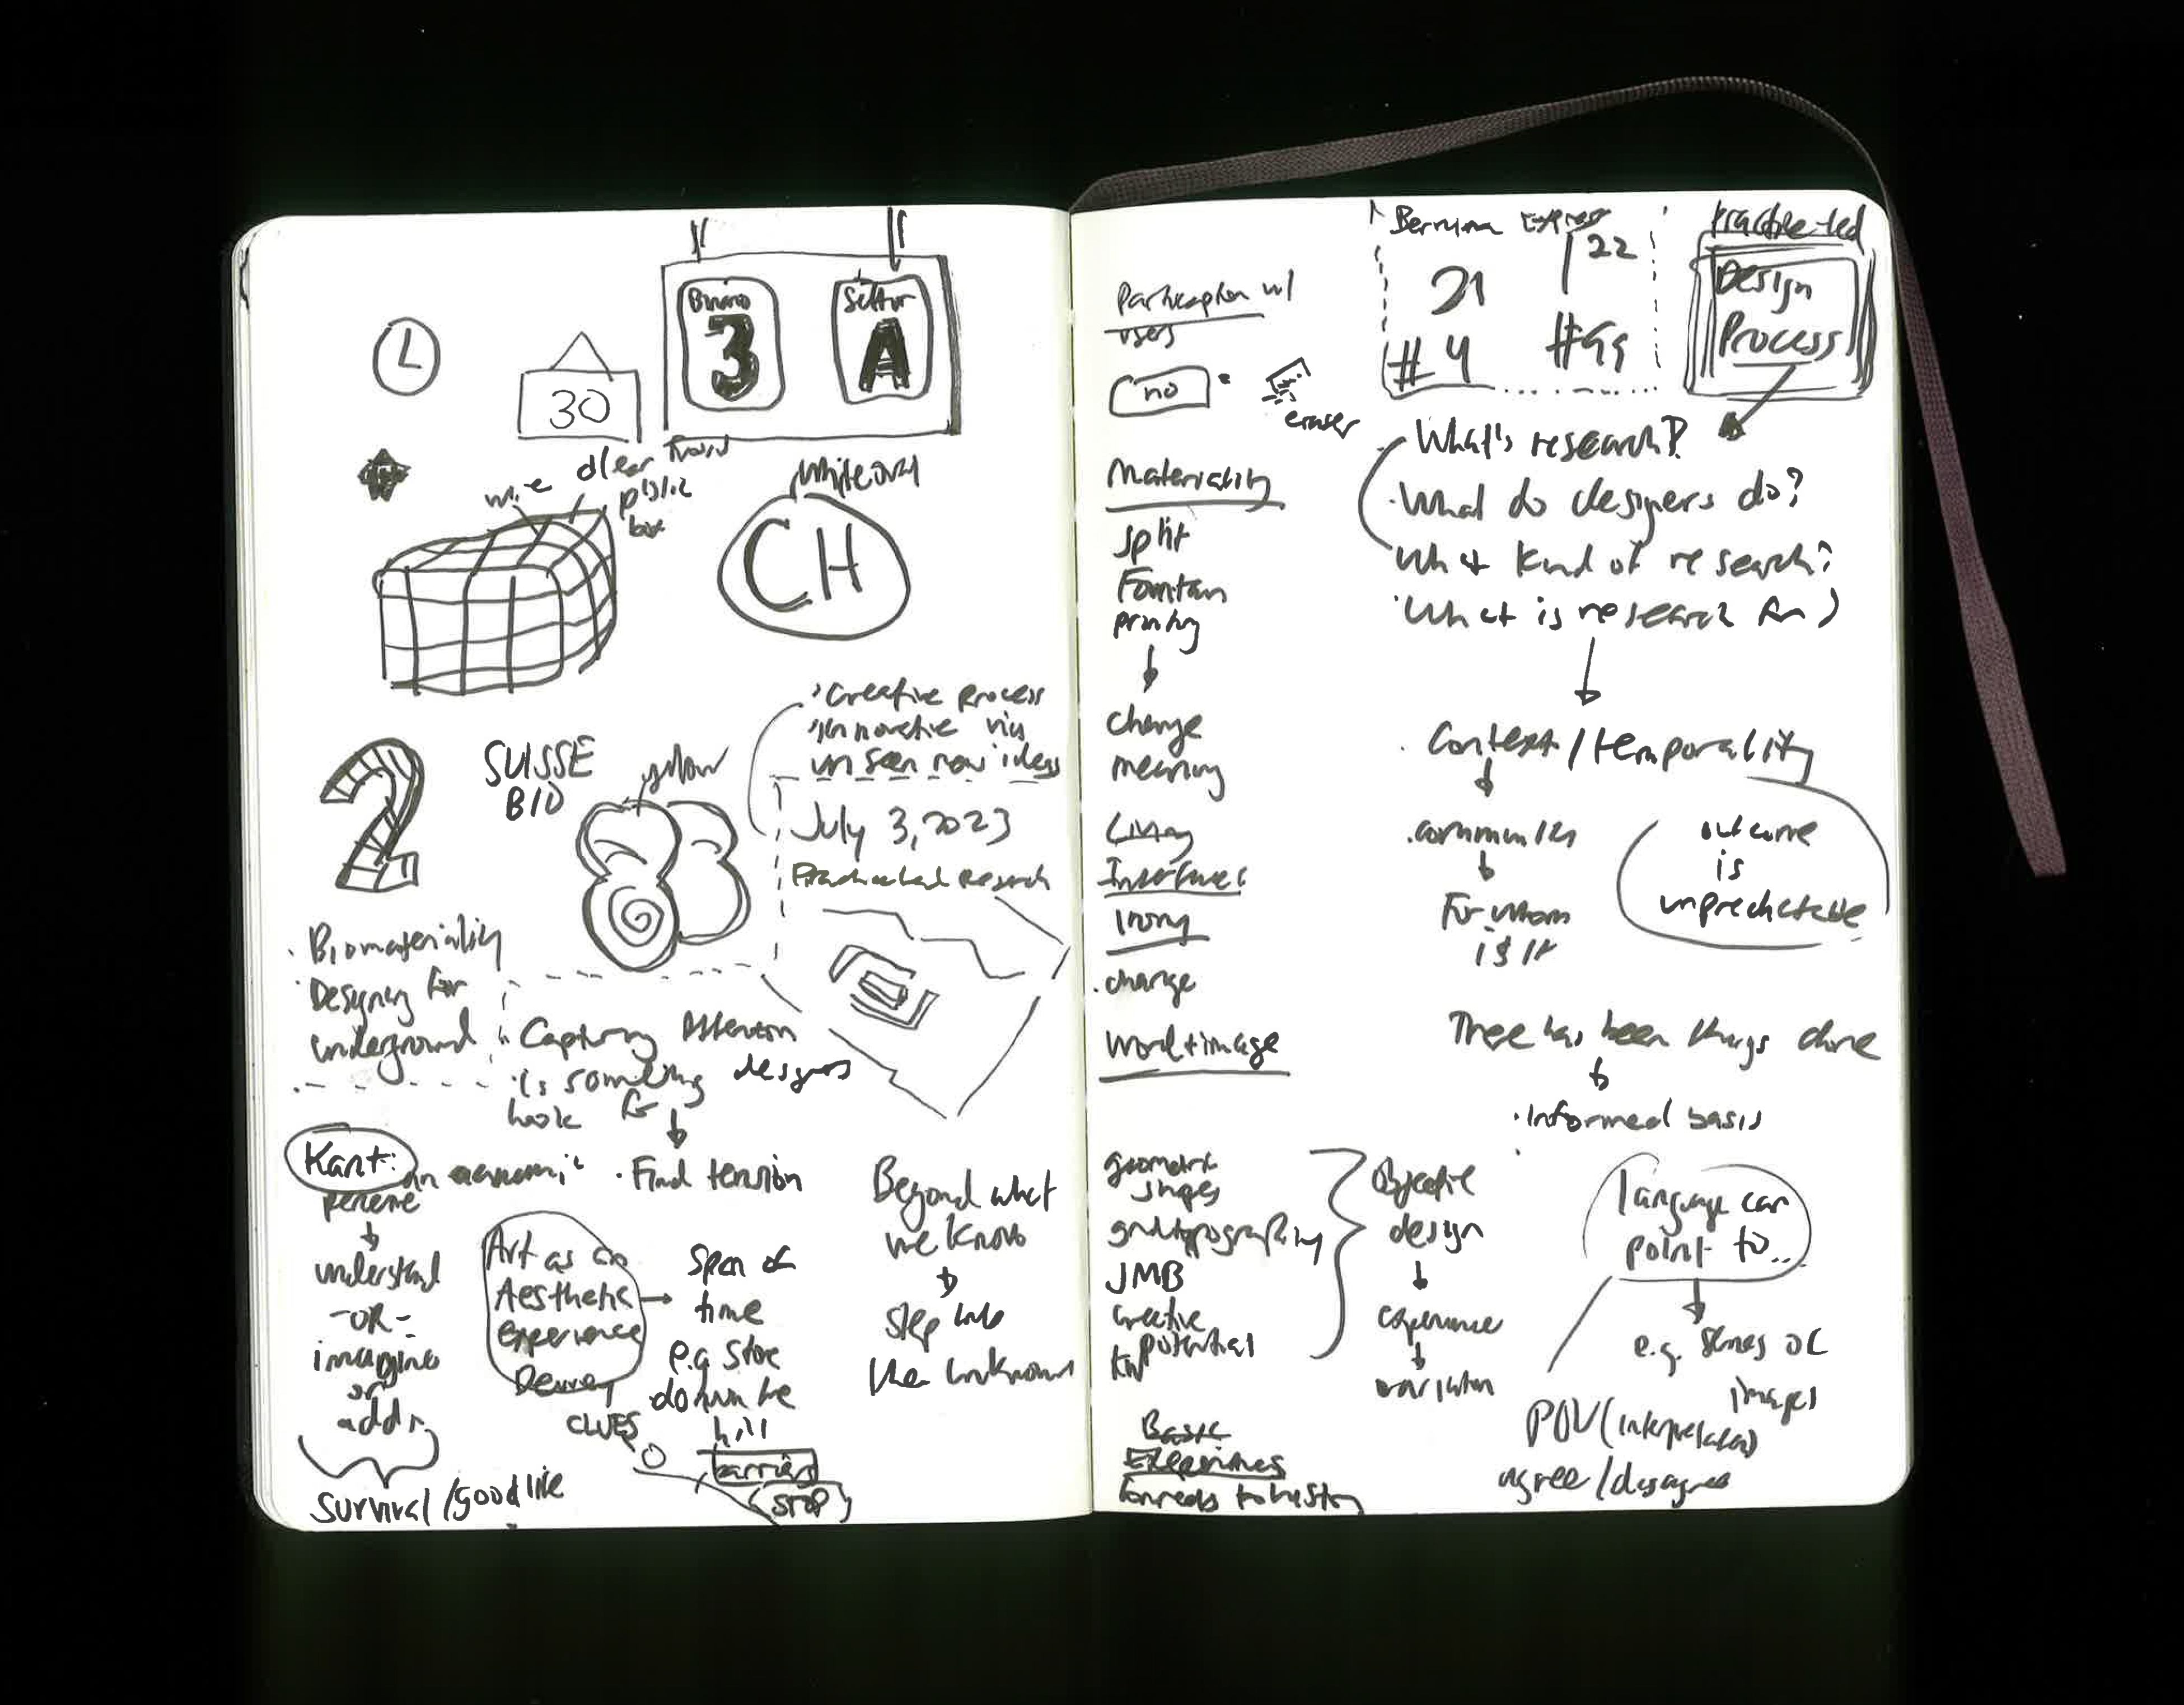 3
Settor
A
30
wire
clear
box
CH
2
SUISSE
BIO
yellow
Creative process
innovative via
unseen new ideas
July 3, 2023
Research
Biomateriality
Designing for
underground
Capturing Attention
is something designers
look for
Find tension
Kant:
perceive
understand
-OR-
imagine
or
add
Survival/good life
Art as an
Aesthetic
Experience
Dewey
CLUES
Span of
time
e.g. stone
down the
hill
barrier
STOP
Beyond what
we know
step into
the unknown
Participation w/
users
no
eraser
Materiality
split
Fountain
printing
change
meaning
Living
Interfaces
Irony
change
word + image
geometric
shapes
grid typography
JMB
creative
potential
Basic
Exercises
to history
Objective
design
experience
variation
Bernina Express
21
22
#4
#99
Practice-led
Design
Process
What's research?
What do designers do?
What kind of research?
What is research for?
Context/temporality
community
For whom
is it
outcome
is
unpredictable
There has been things done
Informed basis
language can
point to...
e.g. series of
images
POV (interpretation)
agree/disagree